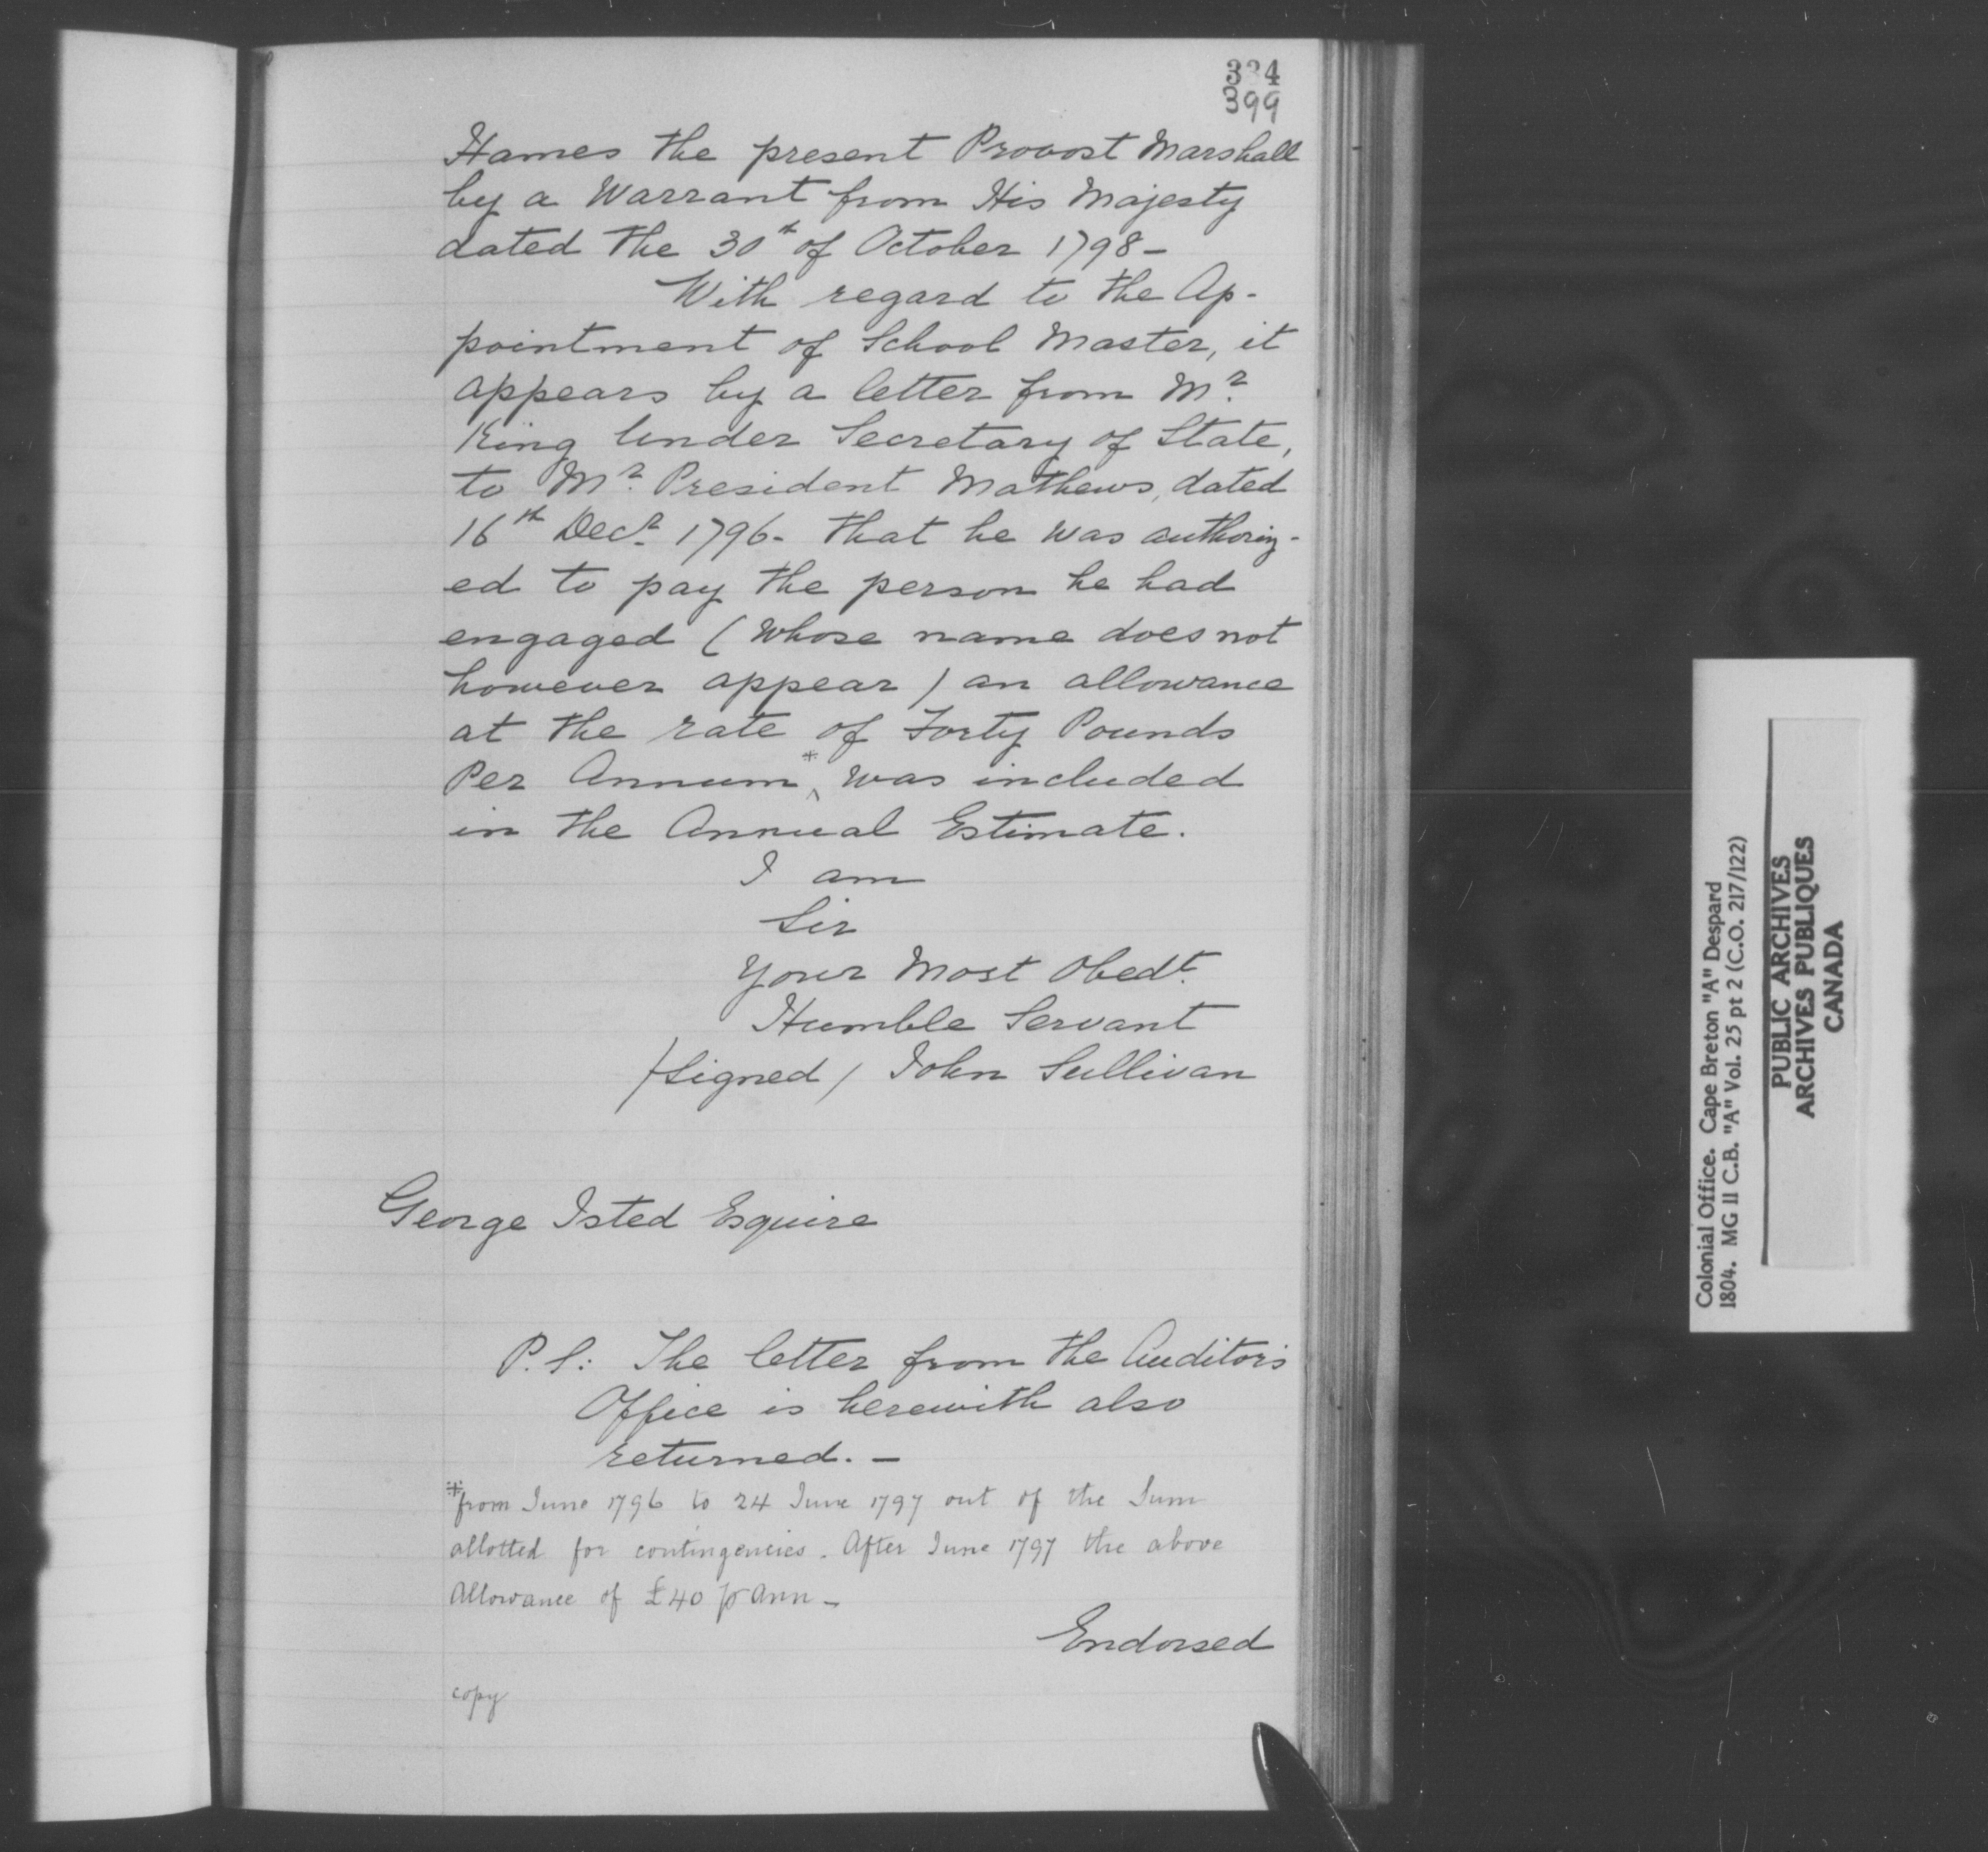 334
399
Hames the present Provost Marshall
by a Warrant from His Majesty
dated the 30th of October 1798 -
With regard to the Ap-
pointment of School Master, it
appears by a letter from Mr.
King Under Secretary of State,
to Mr. President Mathews, dated
16th Decr. 1796 - that he was authoriz-
ed to pay the person he had
engaged ( whose name does not
however appear ) an allowance
at the rate of Forty Pounds
Per Annum *^ was included
in the Annual Estimate.
I am
Sir
Your Most Obedt.
Humble Servant
/Signed/ John Sullivan
George Isted Esquire
P.S: The letter from the Auditor's
Office is herewith also
returned. -
*from June 1796 to 24 June 1797 out of the Sum
allotted for contingencies. After June 1797 the above
Allowance of £40 pr Ann -
Endorsed
copy
Colonial Office. Cape Breton "A" Despard
1804. MG 11 C.B. "A" Vol. 25 pt 2 (C.O. 217/122)
PUBLIC ARCHIVES
ARCHIVES PUBLIQUES
CANADA